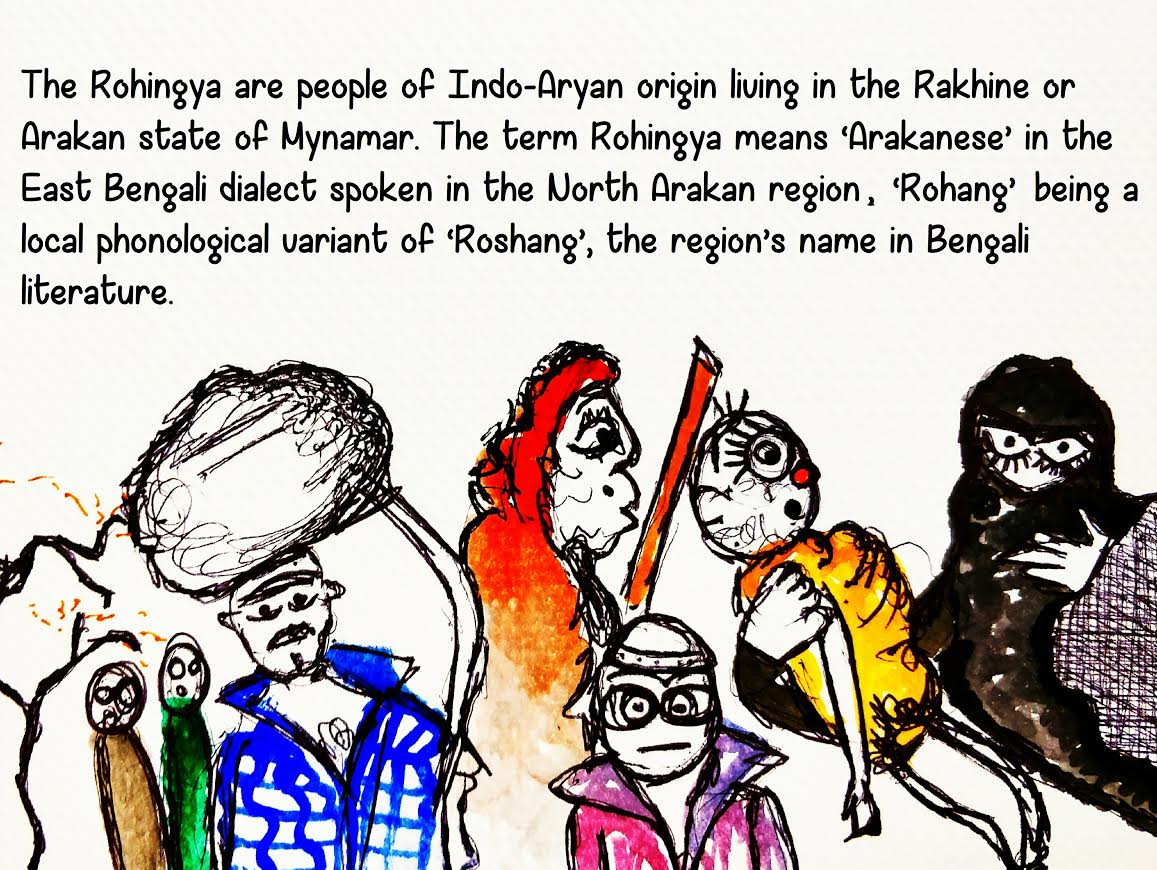 The Rohingya are people of Indo-Aryan origin living in the Rakhine or
Arakan state of Mynamar. The term Rohingya means ‘Arakanese’ in the
East Bengali dialect spoken in the North Arakan region, ‘Rohang’ being a
local phonological variant of ‘Roshang’, the region’s name in Bengali
literature.